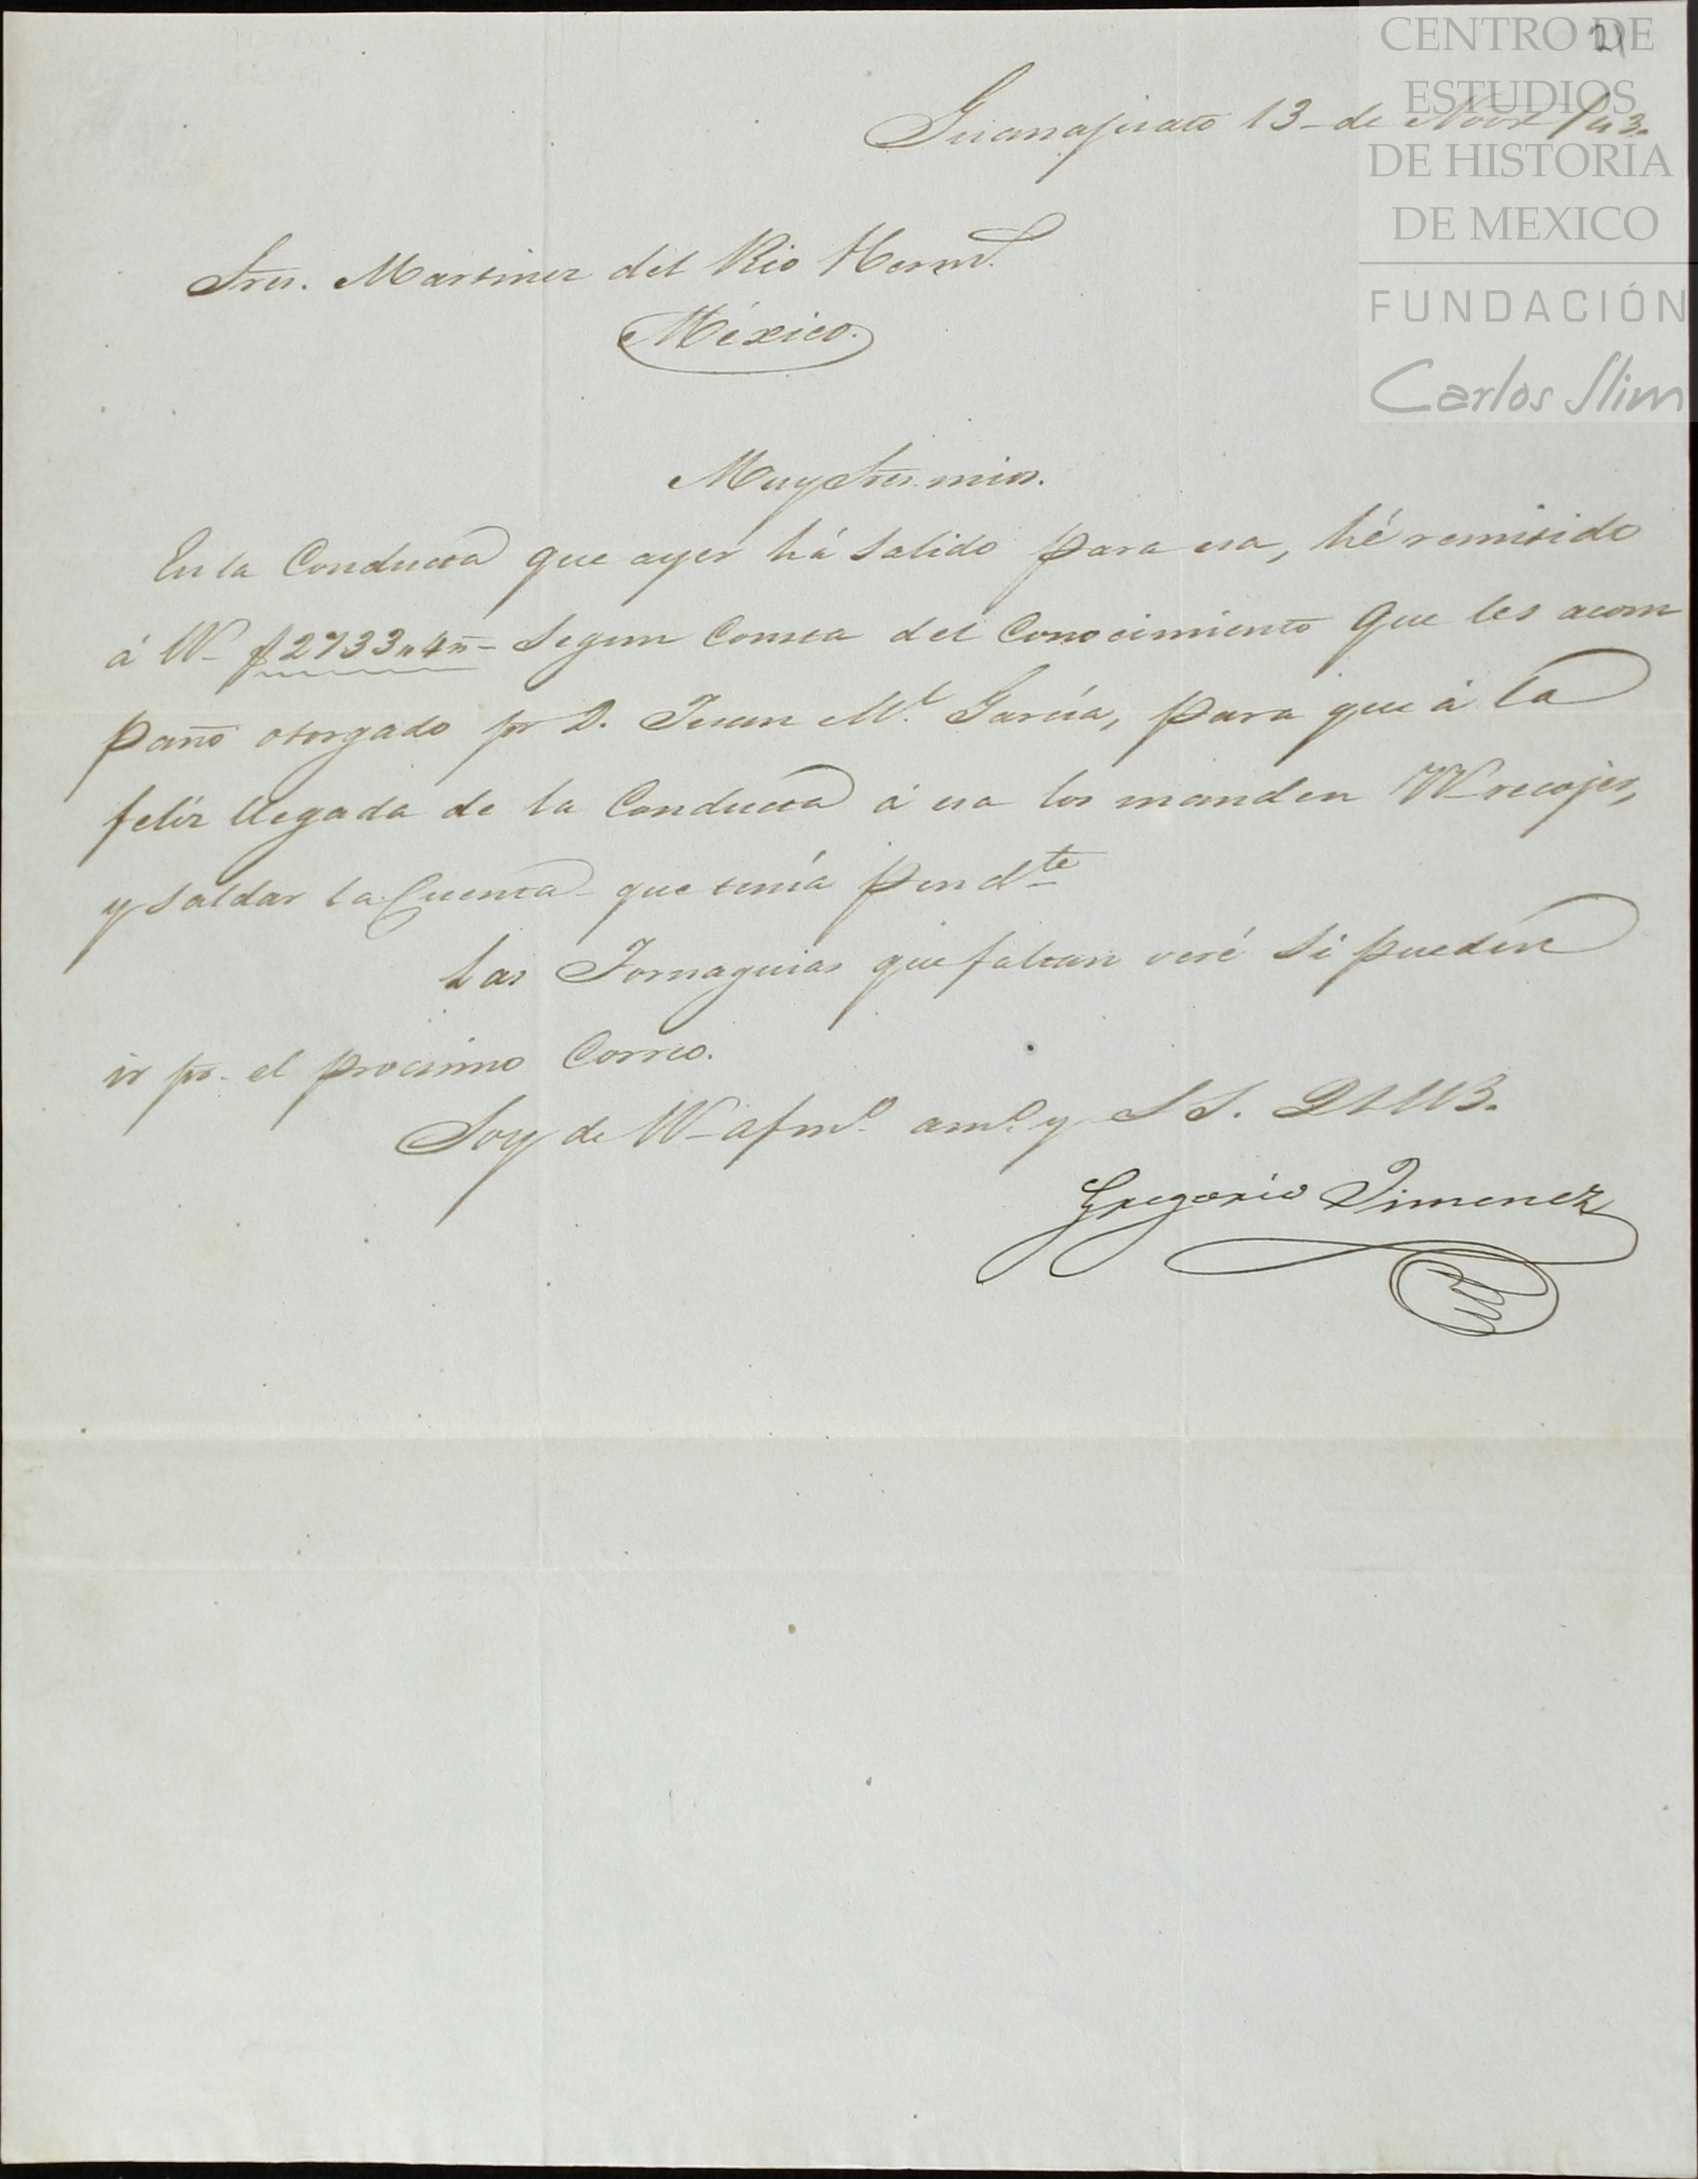 CENTRO DE
ESTUDIOS
DE HISTORIA
DE MEXICO
FUNDACIÓN
Carlos Slim
21
Guanajuato 13 de Nove /43.
Sres. Martinez del Rio Herms.
México.
Muy Sres. mios.
En la Conducta que ayer há Salido para esa, hé remitido
á VV $2733,,4,, Segun Consta del Conocimiento que les acom
paño otorgado pr D. Juan Ml. García, para que á la
felíz llegada de la Conducta á esa los manden VV recojer,
y Saldar la Cuenta que tenía pendte
Las Tornaguias que faltan veré Si pueden
ir pr. el procsimo Correo.
Soy de VV afmo. amo. y S S. Q S M B.
Gregorio Jimenez